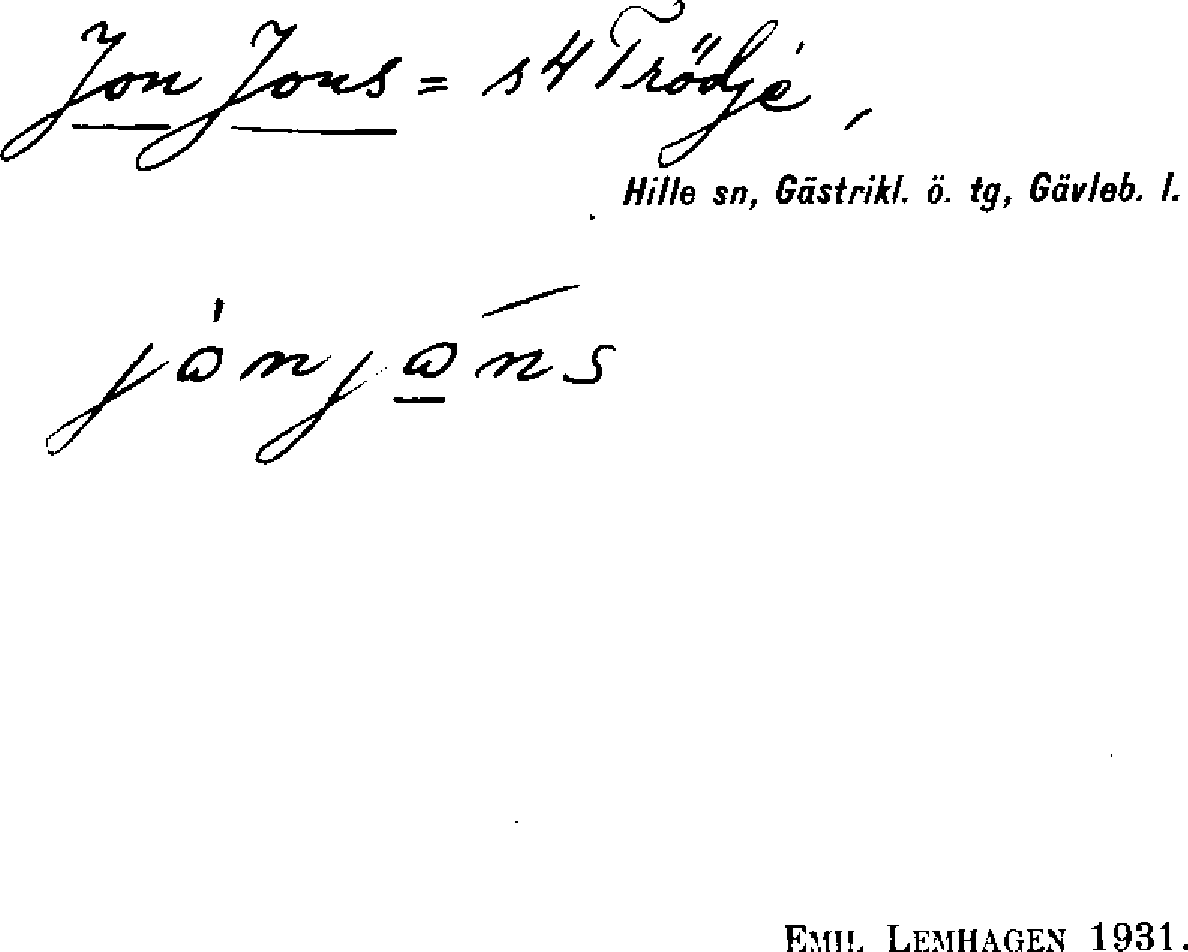 Jon Jons = s 4 Trödje,
Hille sn, Gästrikl. ö. tg, Gävleb. l.
EMIL LEMHAGEN 1931.